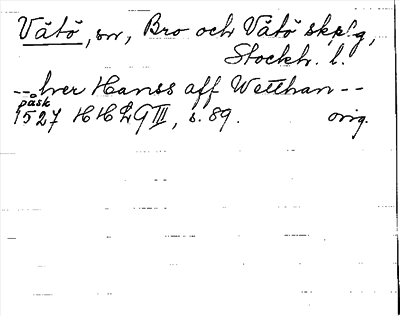 Vätö, sn, Bro och Vätö skplg,
Stockh. l.
-- her Hanss aff Wetthan --
påsk
1527 HH LQ III, s. 89. orig.